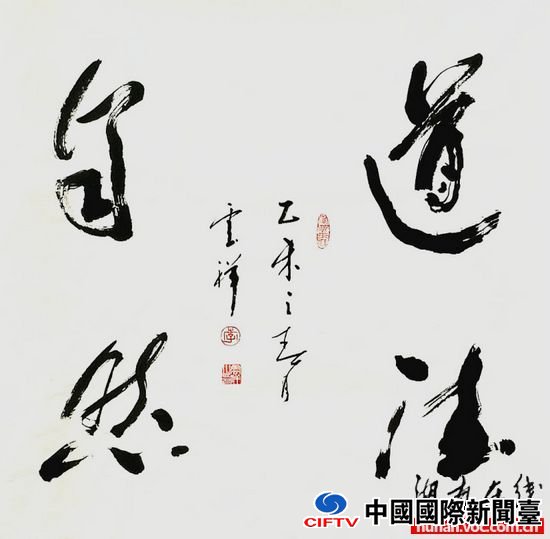 道法
自然
乙未之春月
雲祥
湖南在线
hunan.voc.com.cn
CIFTV
中國國際新聞臺